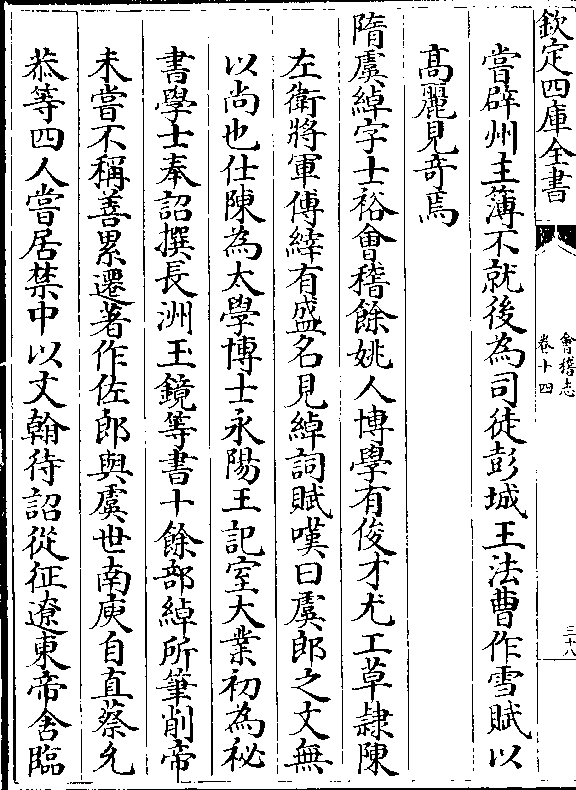 欽定四庫全書
會稽志
卷十四
三十八
嘗辟州主簿不就後為司徒彭城王法曹作雪賦以
高麗見竒焉
隋虞綽字士裕會稽餘姚人博學有俊才尤工草隸陳
左衛將軍傅縡有盛名見綽詞賦嘆曰虞郎之文無
以尚也仕陳為太學博士永陽王記室大業初為祕
書學士奉詔撰長洲玉鏡等書十餘部綽所筆削帝
未嘗不稱善累遷著作佐郎與虞世南庾自直蔡允
恭等四人嘗居禁中以文翰待詔從征遼東帝舍臨